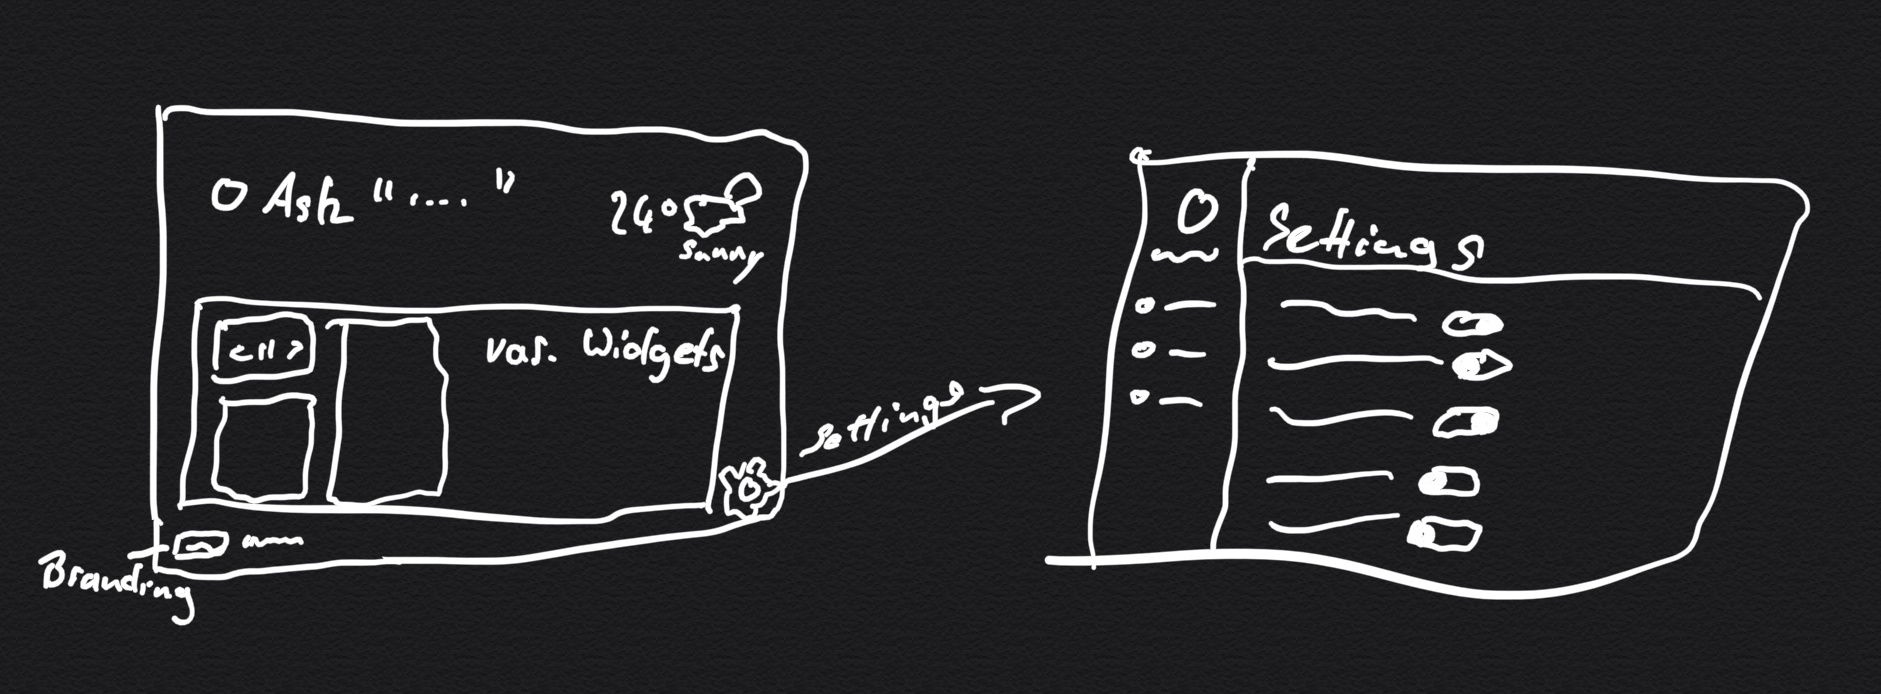 O Ask "...."
24°
Sunny
var. Widgets
Settings
Branding
Settings